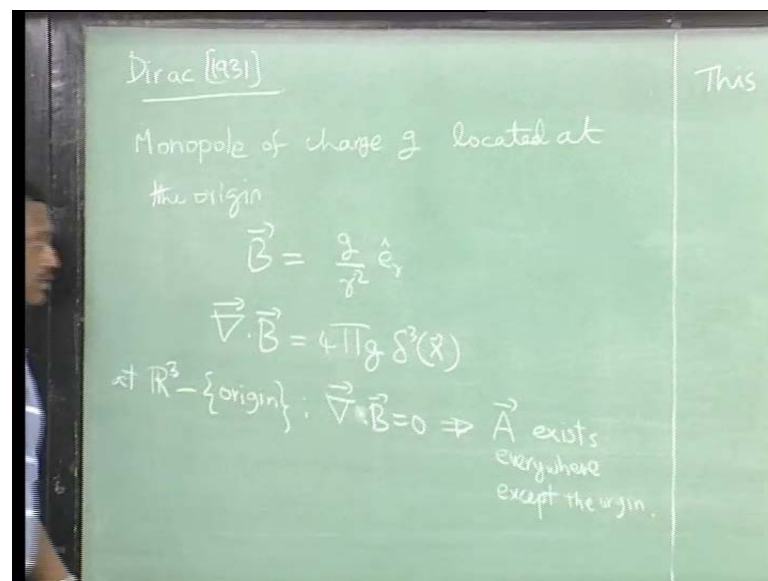 Dirac [1931]
This
Monopole of charge g located at
the origin
B⃗ = g/r² ê_r
∇⃗·B⃗ = 4πg δ³(x⃗)
at ℝ³ – {origin} : ∇⃗·B⃗ = 0 ⇒ A⃗ exists
everywhere
except the origin.